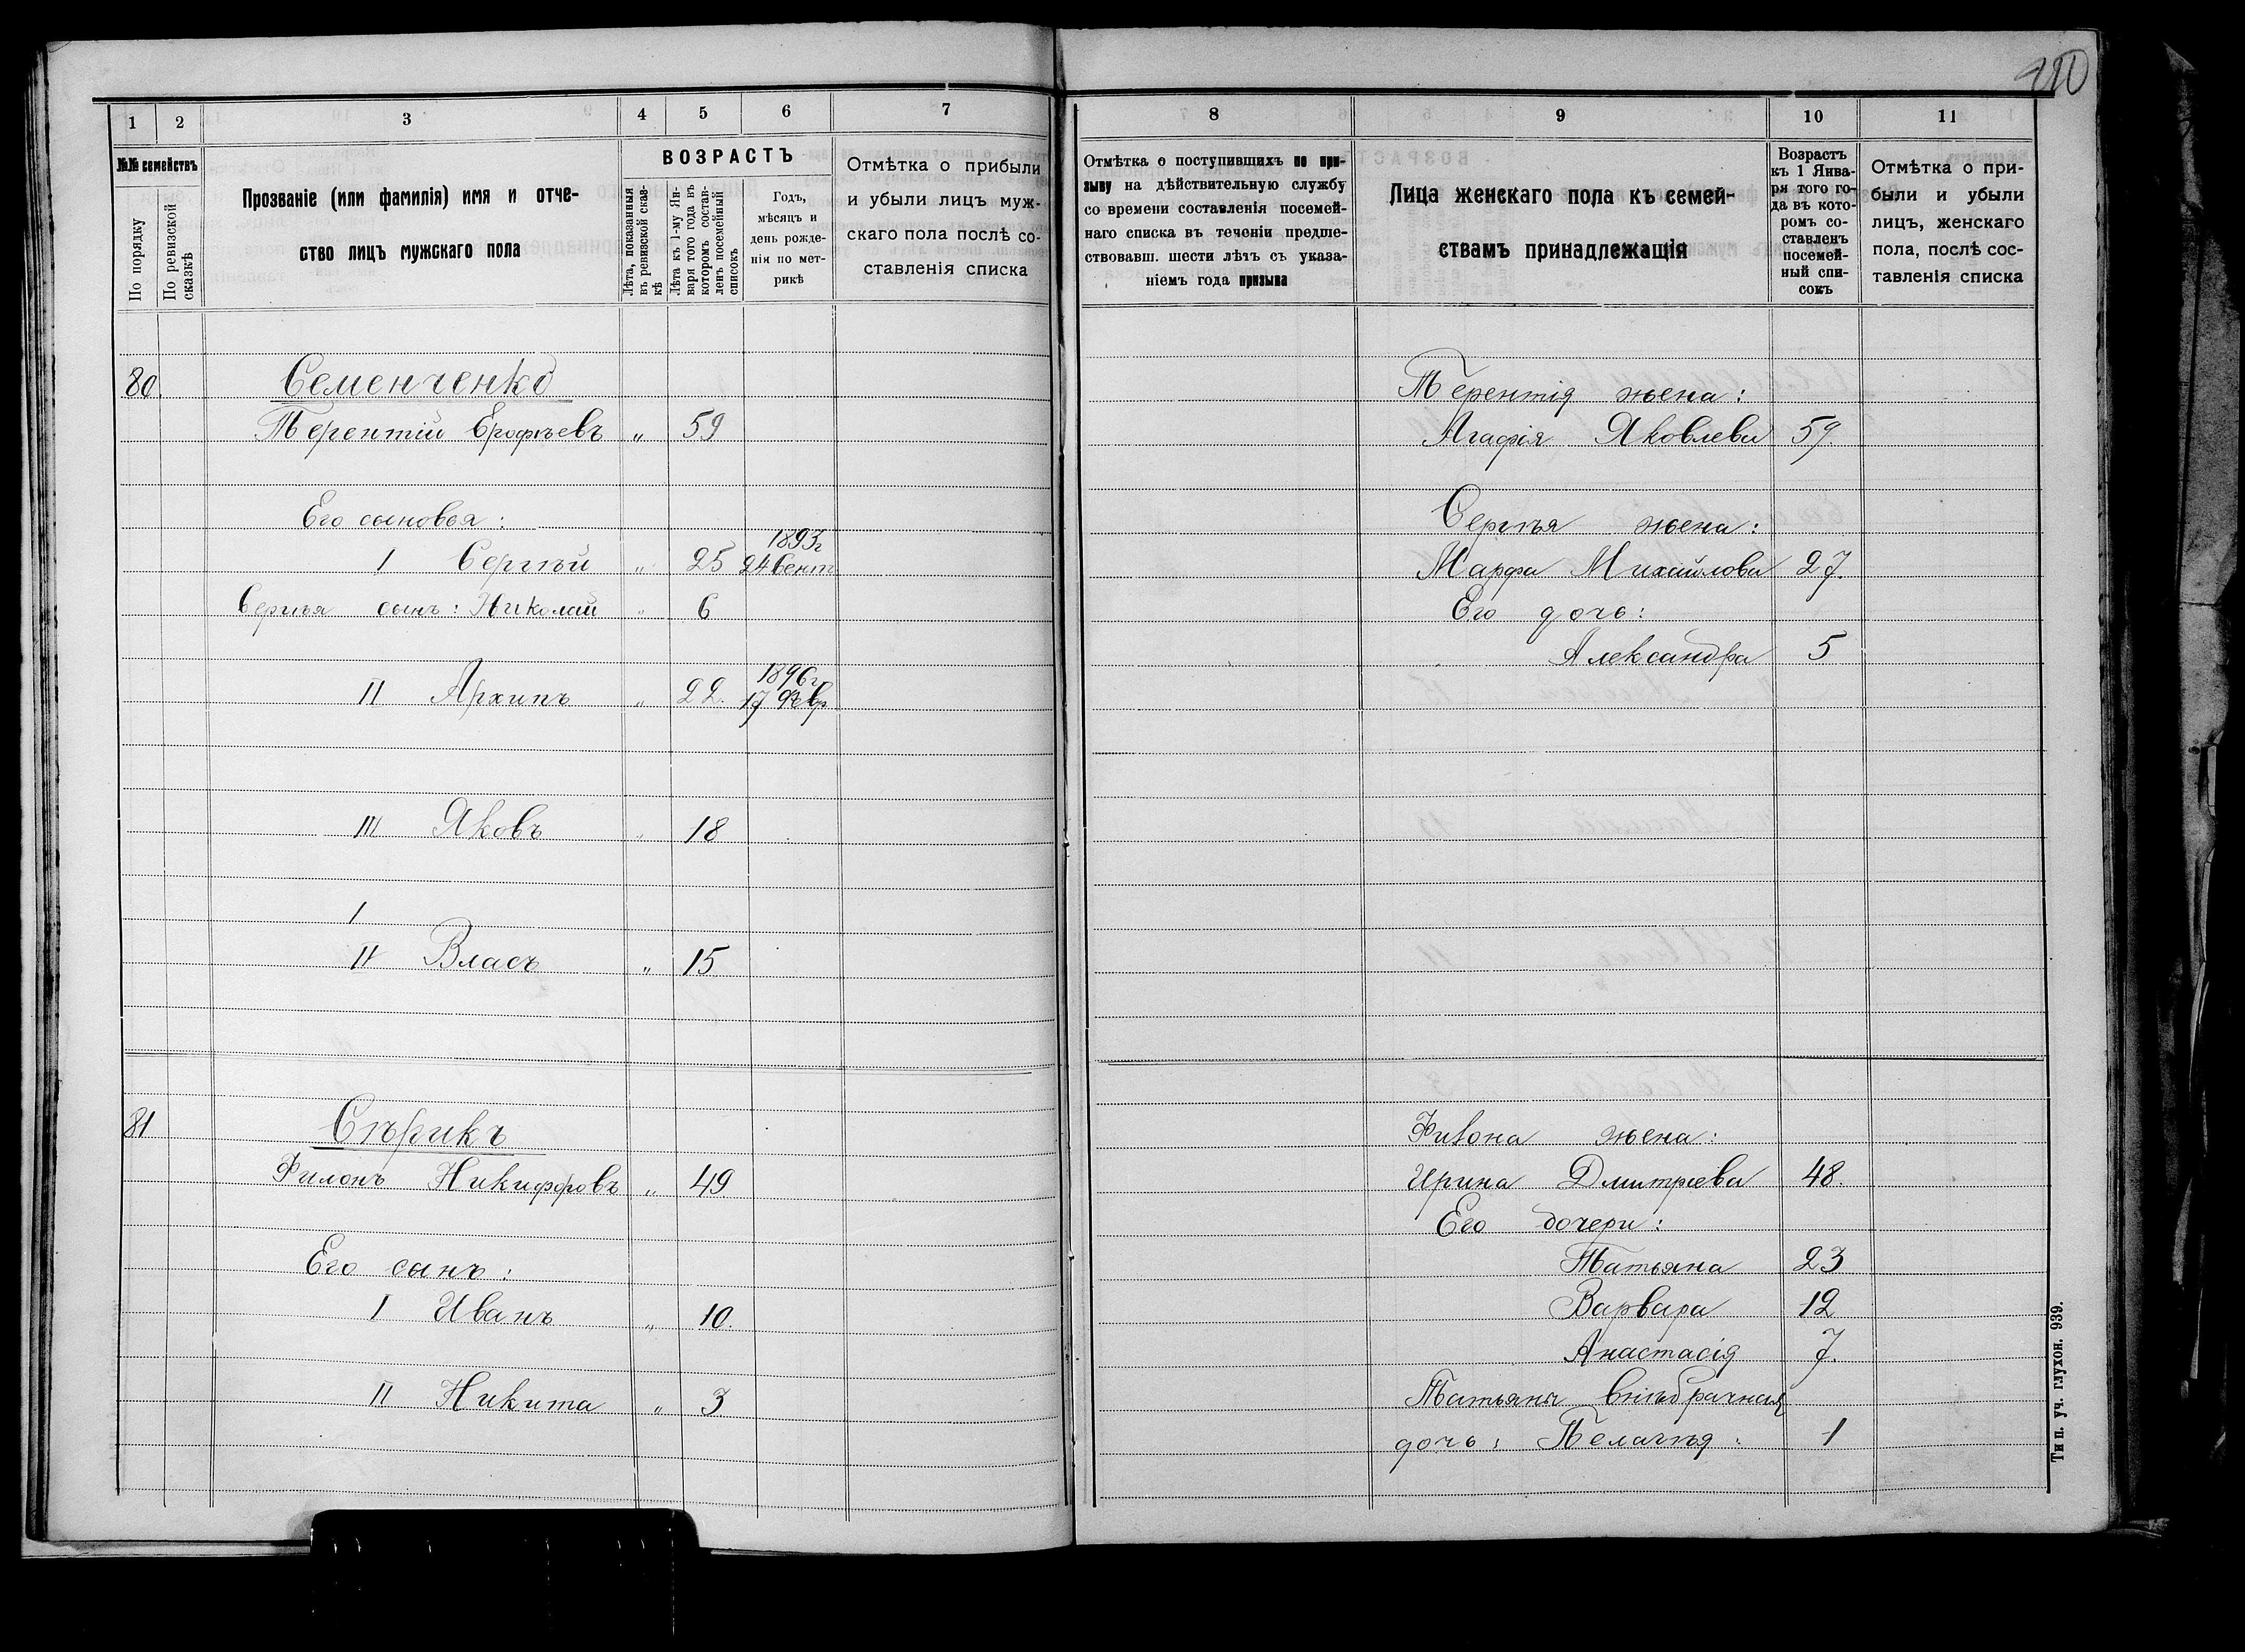 1 2 3 4 5 6 7
№№ семействъ
По порядку
По ревизской сказкѣ
Прозваніе (или фамилія) имя и отче-
ство лицъ мужскаго пола
ВОЗРАСТЪ
Лѣта, показанныя
въ ревизской сказ-
кѣ
Лѣта къ 1-му Ян-
варя того года въ
которомъ состав-
ленъ посемейный
списокъ
Годъ,
мѣсяцъ и
день рожде-
нія по мет-
рикѣ
Отмѣтка о прибыли
и убыли лицъ муж-
скаго пола послѣ со-
ставленія списка
80. Семенченко
Терентій Ерофѣевъ „ 59
Его сыновья:
I Сергѣй „ 25 1893г
24 Сент
Сергѣя сынъ: Николай „ 6
II Архипъ „ 22. 1896г
17 Февр
III Яковъ „ 18
I
II Власъ „ 15
81 Сѣрикъ
Филонъ Никифоровъ „ 49
Его сынъ:
I Иванъ „ 10.
II Никита „ 3
8 9 10 11
Отмѣтка о поступившихъ по при-
зыву на дѣйствительную службу
со времени составленія посемей-
наго списка въ теченіи предше-
ствовавш. шести лѣтъ съ указа-
ніемъ года призыва
Лица женскаго пола къ семей-
ствамъ принадлежащія
Возрастъ
къ 1 Янва-
ря того го-
да въ кото-
ромъ со-
ставленъ
посемей-
ный спи-
сокъ
Отмѣтка о при-
были и убыли
лицъ, женскаго
пола, послѣ сос-
тавленія списка
Терентія жена:
Агафія Яковлева 59
Сергѣя жена:
Марфа Михайлова 27.
Его дочь:
Александра 5
Филона жена:
Ирина Дмитріева 48.
Его дочери:
Татьяна 23
Варвара 12
Анастасія 7.
Татьяны внѣбрачная
дочь: Пелагѣя: 1
Тип. уч. глухон. 939.